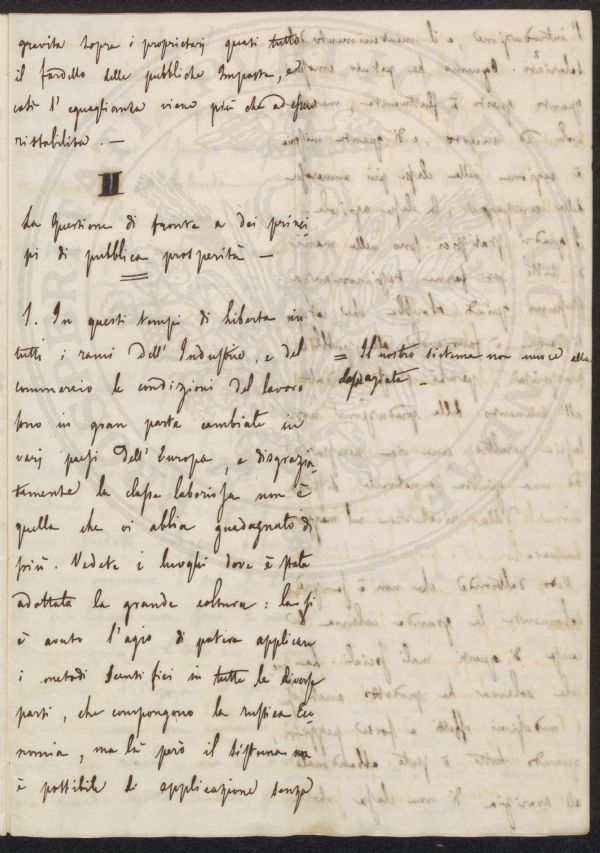 gravita sopra i proprietarj quasi tutto
il fardello delle pubbliche Imposte, e
così l'eguaglianza viene più che ad essere
ristabilita. —
II
La Questione di fronte a dei princi
pi di pubblica prosperità —
1. In questi tempi di libertà in
tutti i rami dell'Industria, e del
commercio le condizioni del lavoro
sono in gran parte cambiate in
varj paesi dell'Europa, e disgrazia-
tamente la classe laboriosa non è
quella che vi abbia guadagnato di
più. Vedete i luoghi dove è stata
adottata la grande coltura: là si
è avuto l'agio di potere applicare
i metodi scientifici in tutte le diverse
parti, che compongono la rustica Eco-
nomia, ma là però il sistema non
è possibile di applicazione senza
= Il nostro sistema non nuoce alla
classe agiata —